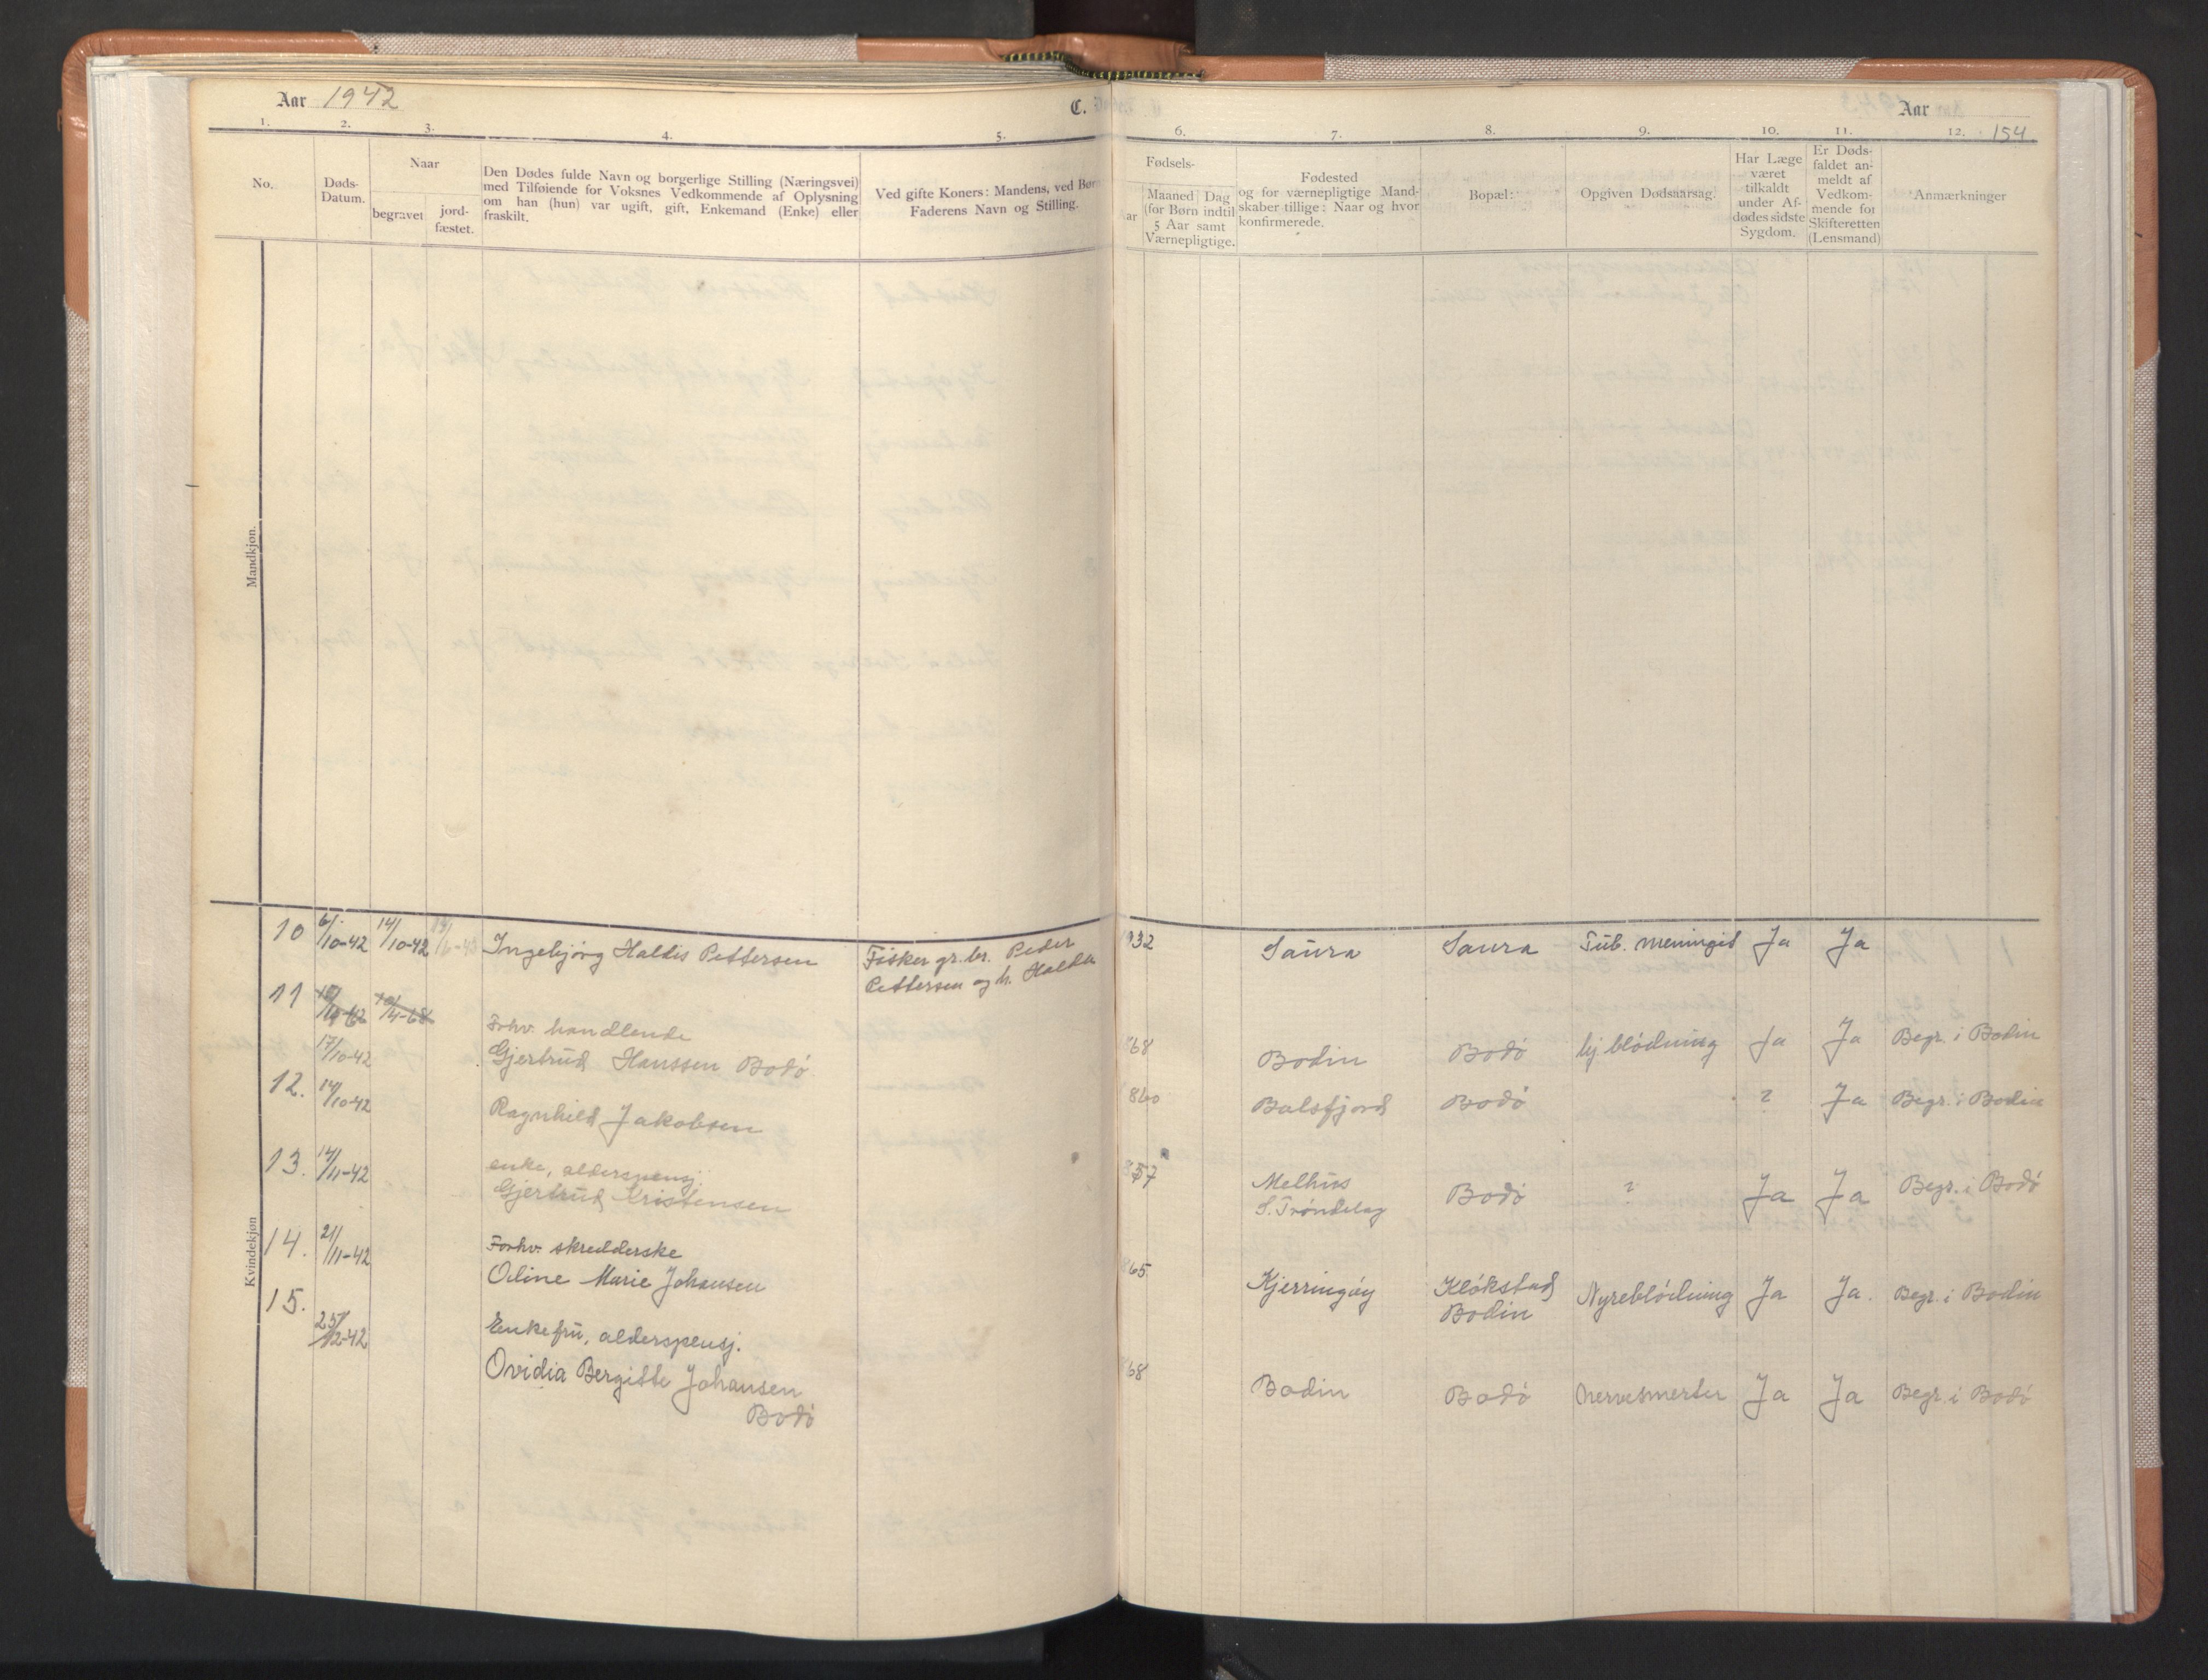 Aar 1942
C.
Aar
154
1. 2. 3. 4. 5. 6. 7. 8. 9. 10. 11. 12.
No.
Døds-
Datum.
Naar
begravet
jord-
fæstet.
Den Dødes fulde Navn og borgerlige Stilling (Næringsvei)
med Tilføiende for Voksnes Vedkommende af Oplysning
om han (hun) var ugift, gift, Enkemand (Enke) eller
fraskilt.
Ved gifte Koners: Mandens, ved Børn
Faderens Navn og Stilling.
Fødsels-
Aar
Maaned Dag
(for Børn indtil
5 Aar samt
Værnepligtige.
Fødested
og for værnepligtige Mand-
skaber tillige: Naar og hvor
konfirmerede.
Bopæl:
Opgiven Dødsaarsag.
Har Læge
været
tilkaldt
under Af-
dødes sidste
Sygdom.
Er Døds-
faldet an-
meldt af
Vedkom-
mende for
Skifteretten
(Lensmand)
Anmærkninger
Mandkjøn.
Kvindekjøn
10 6/10-42 14/10-42 Ingebjørg Haldis Pettersen Fisker gr.br. Peder
Pettersen og h.
1932 Saura Saura Tub. meningit Ja Ja
11
17/10-42 Forhv. handlende
Gjertrud Hanssen Bodö
868 Bodin Bodö hj.blödning Ja Ja Begr. i Bodin
12. 14/10-42 Ragnhild Jakobsen
860 Balsfjord Bodö ? Ja Begr. i Bodin
13. 14/11-42 enke, alderspensj.
Gjertrud Kristensen
857 Melhus
S. Trøndelag
Bodö ? Ja Ja Begr. i Bodö
14. 21/11-42 Forhv. skredderske
Oline Marie Johansen
865 Kjerringöy Klökstad
Bodin
Nyreblödning Ja Ja. Begr. i Bodin
15. 25/12-42 Enkefru, alderspensj.
Ovidia Bergitte Johansen
Bodö
868 Bodin Bodö Nervesmerter Ja Ja Begr. i Bodö